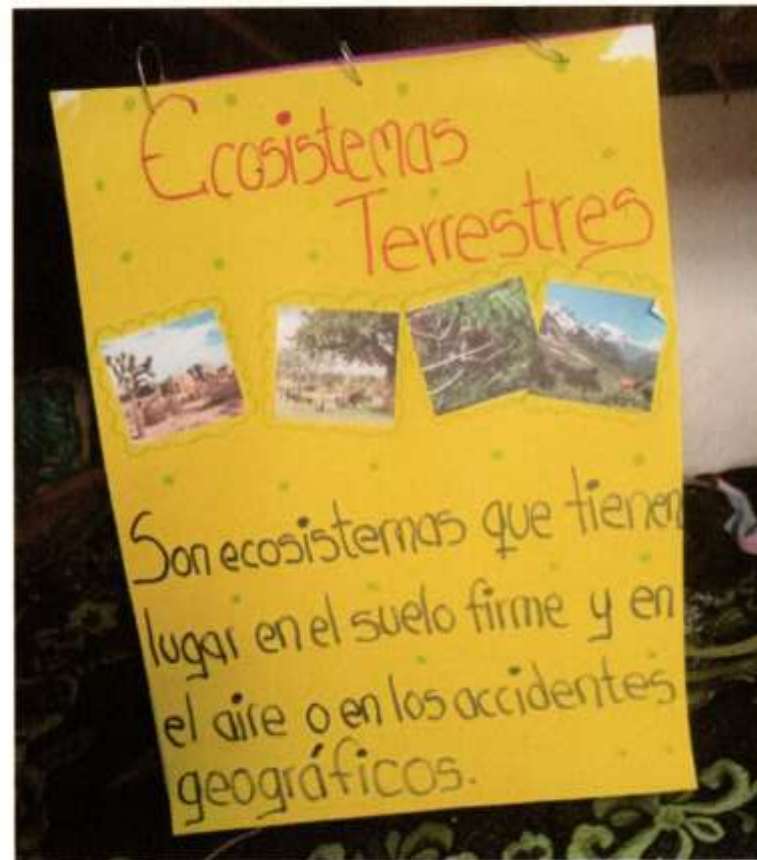 Ecosistemas
Terrestres
Son ecosistemas que tienen
lugar en el suelo firme y en
el aire o en los accidentes
geográficos.